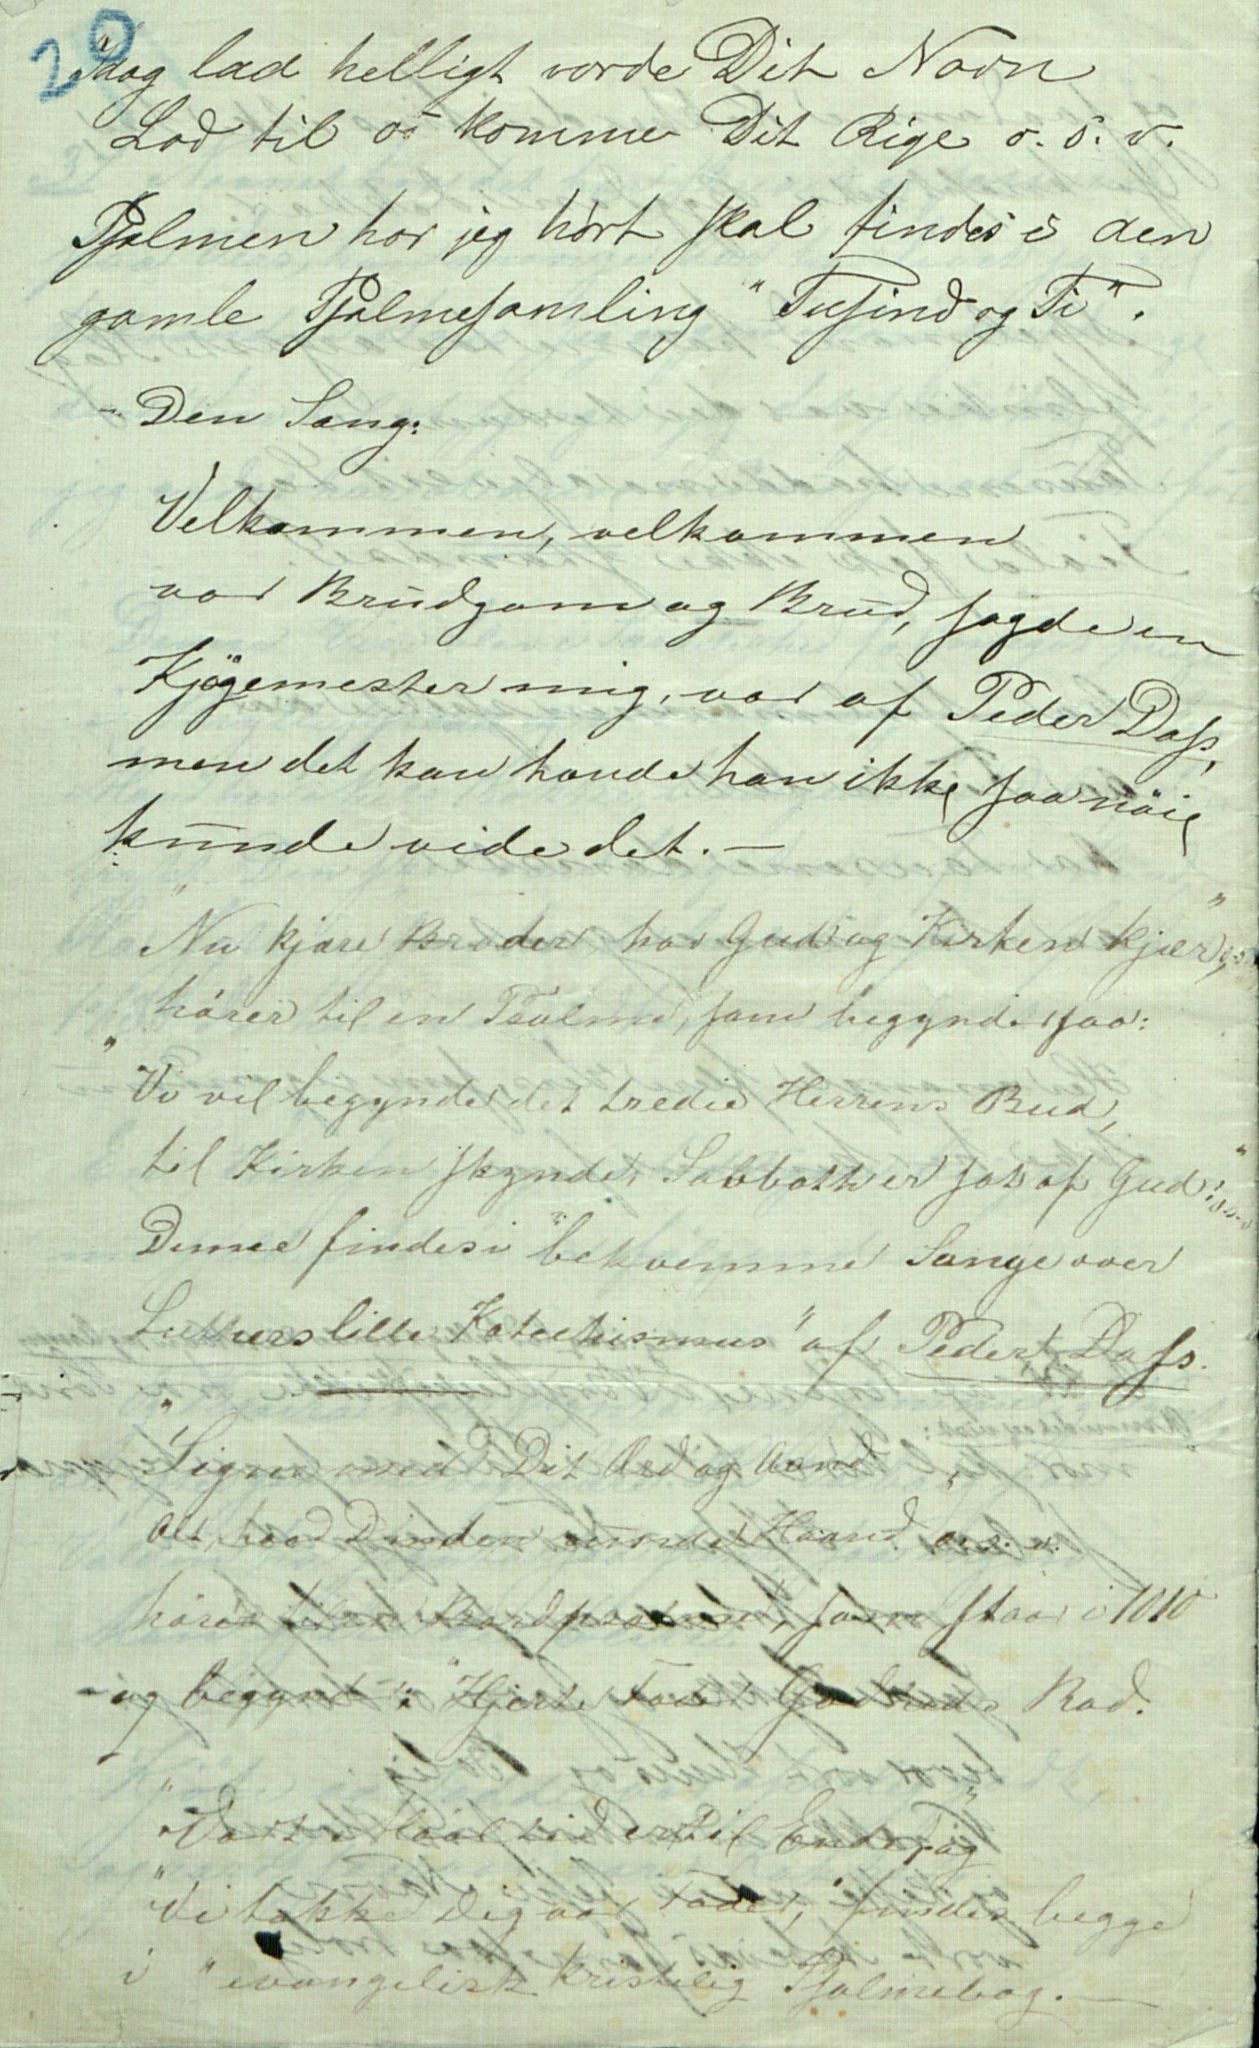 20
Idag lad helligt vorde Dit Navn
Lad til os komme Dit Rige o. s. v.
Psalmen har jeg hört skal findes i den
gamle Psalmesamling "Tusind og Ti".
- Den Sang:
Velkommen, velkommen
vor Brudgom og Brud, sagde en
Kjögemester mig, var af Peder Dass,
men det kan hænde han ikke saa nöie
kunde vide det. —
"Nu kjære Brøder, har Gud og Kirken kjær,"
hörer til en Psalme, som begynder saa:
"Vi vil begynde det tredie Herrens Bud,
til Kirken skynde, Sabbath er sat af Gud" o. s. v.
Denne findes i "bekvemme Sange over
Luthers lille Katechismus" af Peder Dass.
"Signe med Dit Ord og Aand
Alt, hvad Dinden
hörer til en Bordpsalme, som staar i 1010
og begynder: "Hjerte Fader Rad.
"Vort Maaltid er til Ende" og
"Vi takke Dig vor Fader," findes begge
i "evangelisk kristelig Psalmebog. —